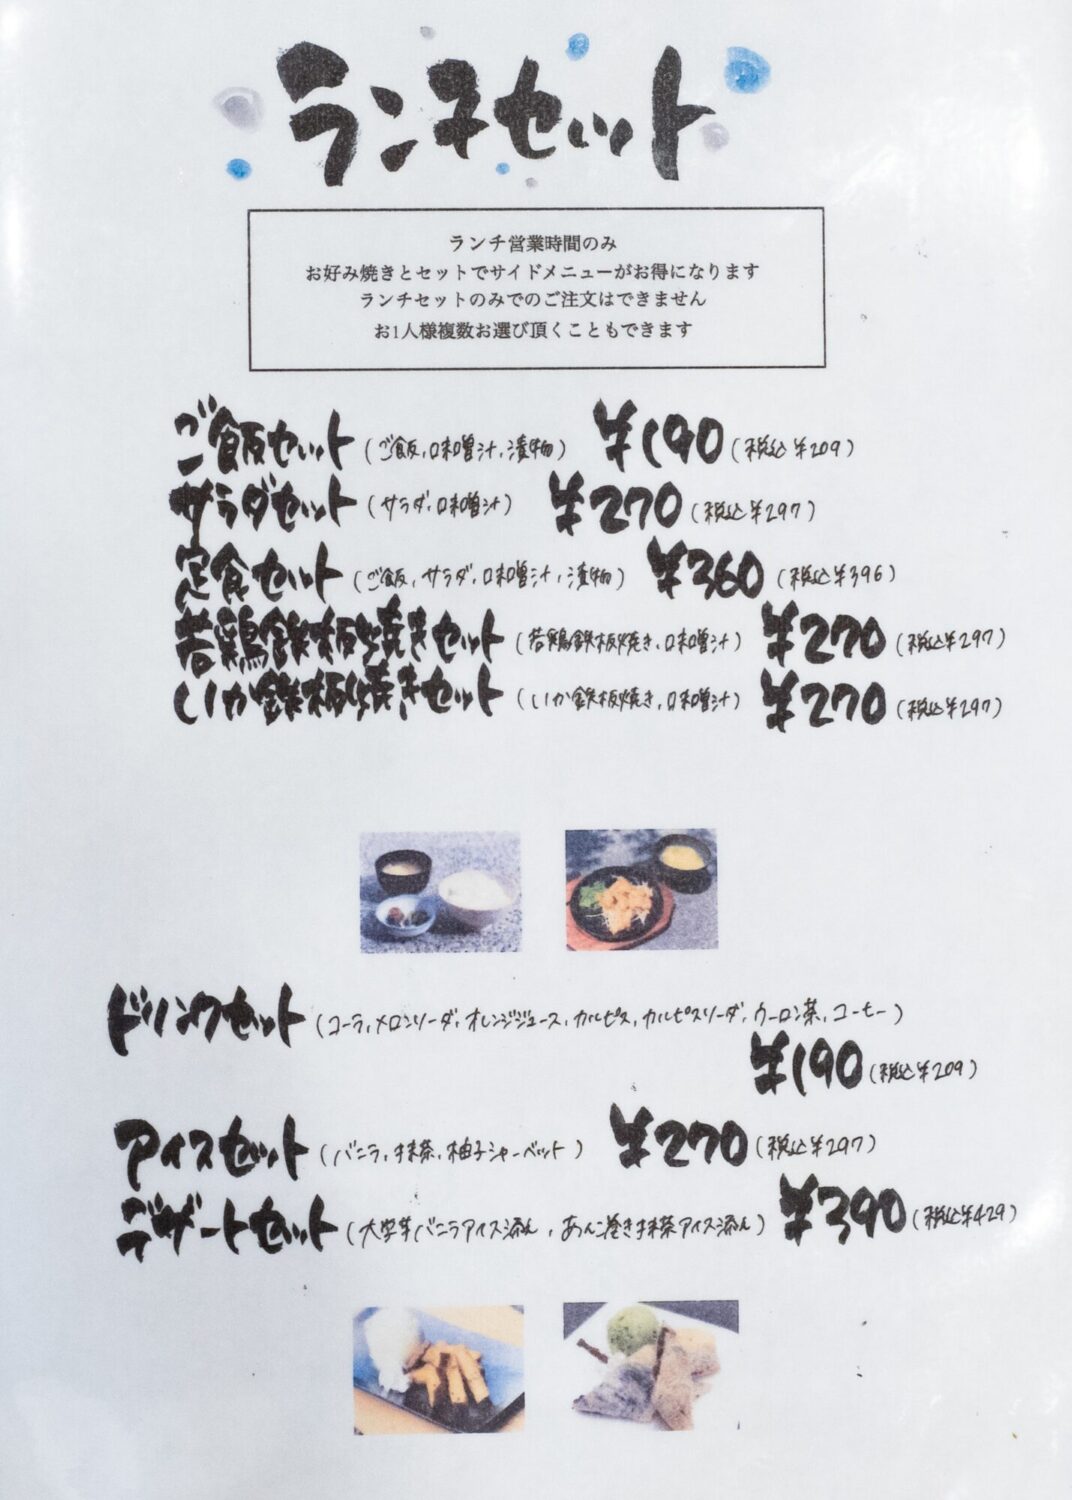 ランチセット
ランチ営業時間のみ
お好み焼きとセットでサイドメニューがお得になります
ランチセットのみでのご注文はできません
お1人様複数お選び頂くこともできます
ご飯セット (ご飯,味噌汁,漬物) ¥190 (税込¥209)
サラダセット (サラダ,味噌汁) ¥270 (税込¥297)
定食セット (ご飯,サラダ,味噌汁,漬物) ¥360 (税込¥396)
若鶏鉄板焼きセット (若鶏鉄板焼き,味噌汁) ¥270 (税込¥297)
いか鉄板焼きセット (いか鉄板焼き,味噌汁) ¥270 (税込¥297)
ドリンクセット (コーラ,メロンソーダ,オレンジジュース,カルピス,カルピスソーダ,ウーロン茶,コーヒー)
¥190 (税込¥209)
アイスセット (バニラ,抹茶,柚子シャーベット) ¥270 (税込¥297)
デザートセット (大学芋バニラアイス添え,あんこ巻き抹茶アイス添え) ¥390 (税込¥429)